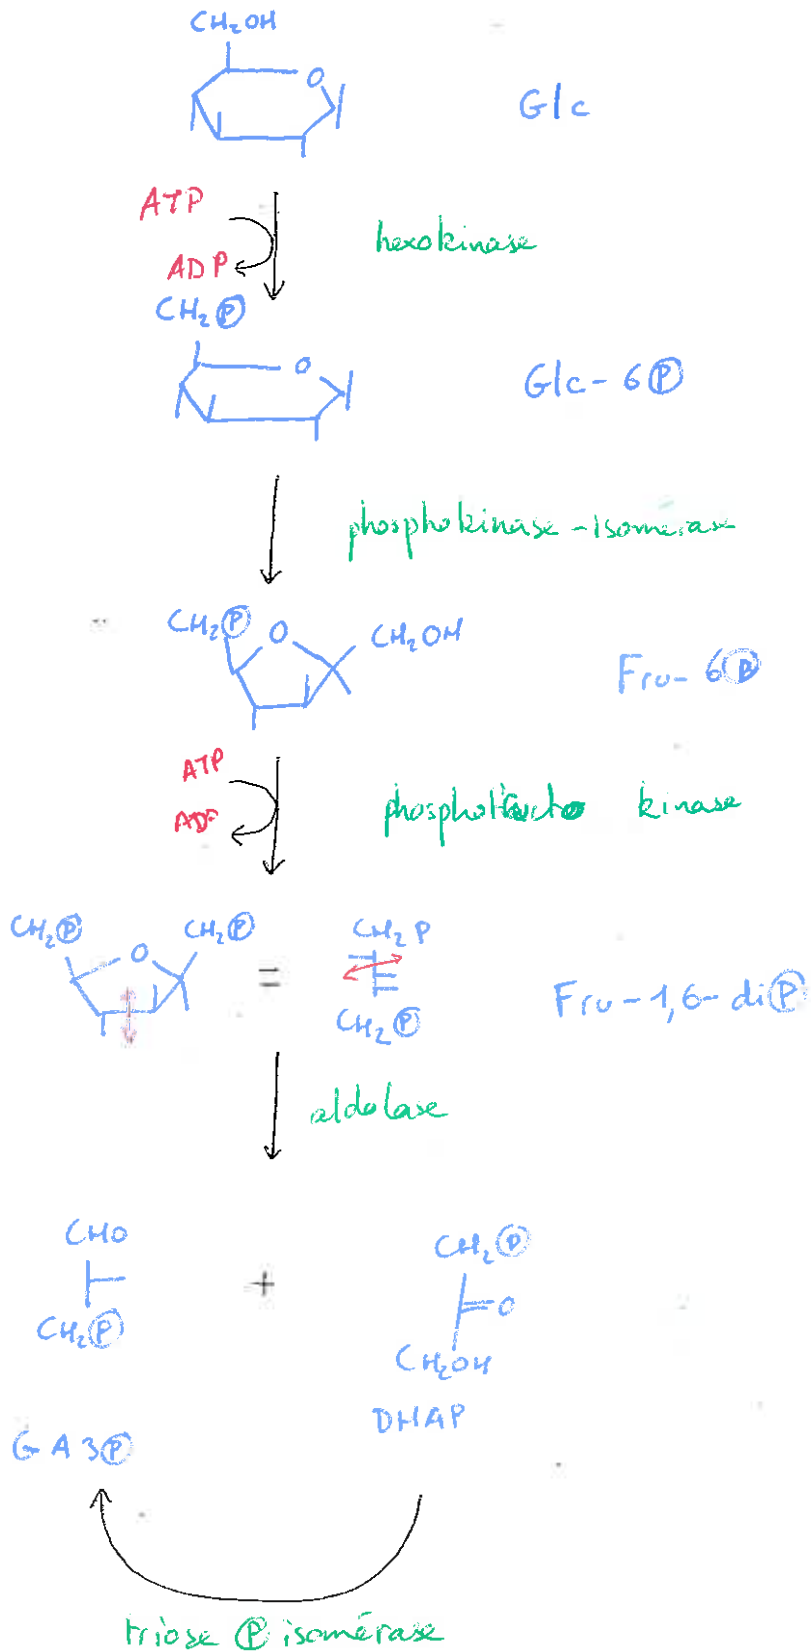 CH₂OH
O
Glc
ATP
hexokinase
ADP
CH₂Ⓟ
O
Glc-6Ⓟ
phosphokinase-isomerase
CH₂Ⓟ O CH₂OH
Fru-6Ⓟ
ATP
kinase
CH₂Ⓟ O CH₂Ⓟ = CH₂P
CH₂Ⓟ
Fru-1,6-diⓅ
aldolase
CHO
+
CH₂Ⓟ
CH₂Ⓟ
O
CH₂OH
DHAP
GA3Ⓟ
triose Ⓟ isomérase